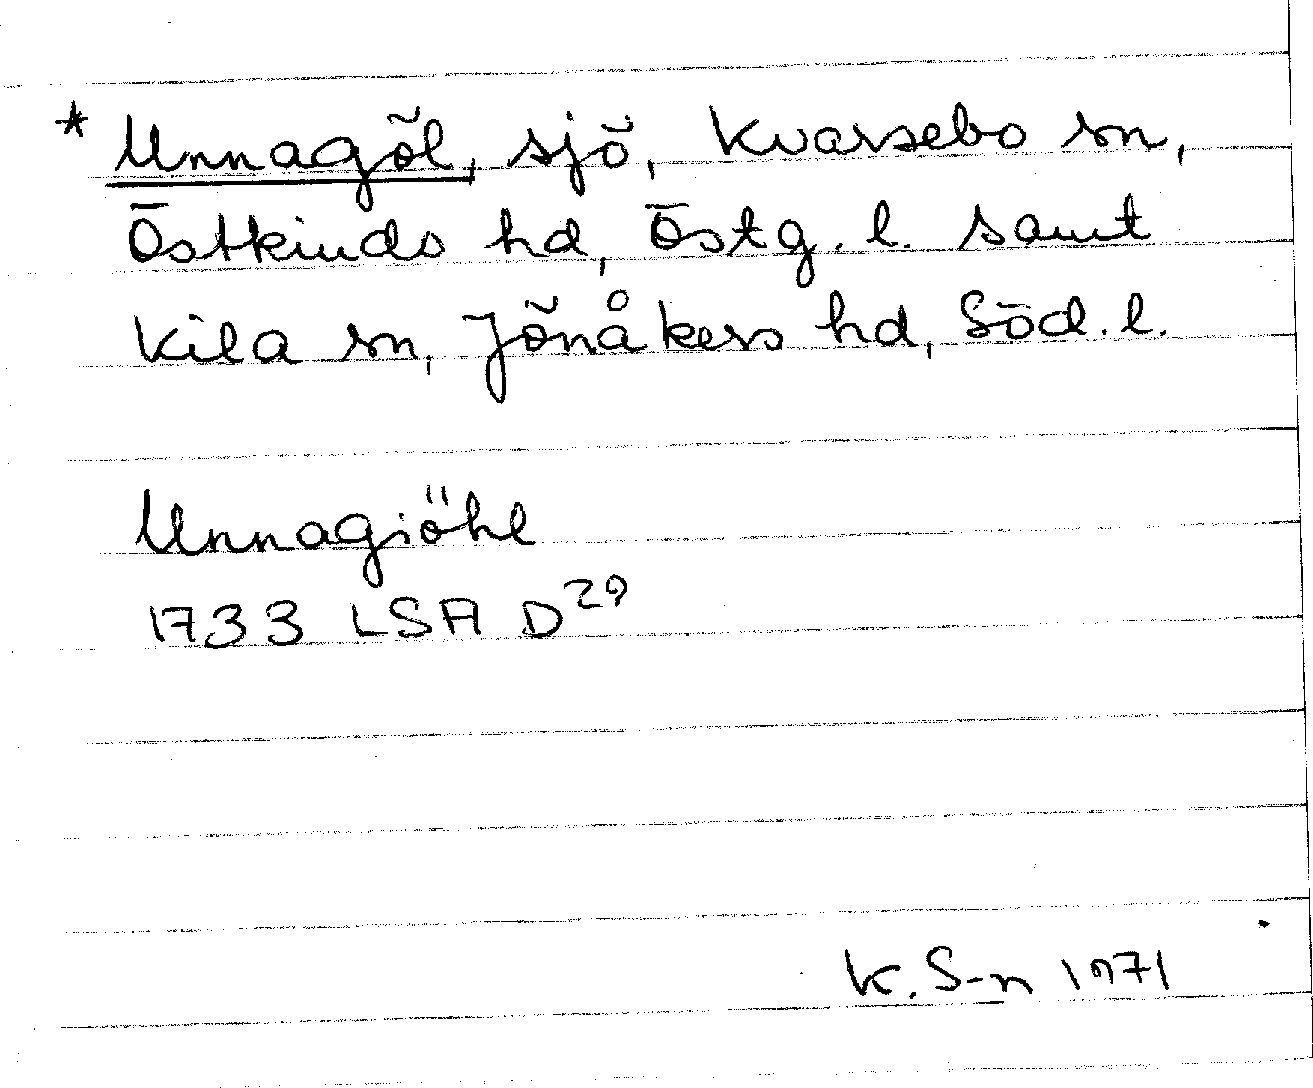 * Unnagöl, sjö, Kvarsebo sn,
Östkinds hd, Östg. l. samt
Kila sn, Jönåkers hd, Söd. l.
Unnagiöhl
1733 LSA D29
K. S-n 1971